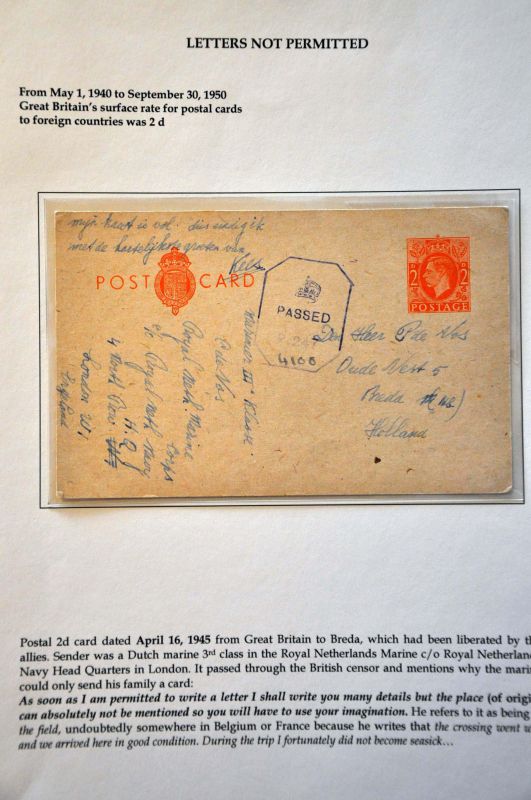 LETTERS NOT PERMITTED
From May 1, 1940 to September 30, 1950
Great Britain's surface rate for postal cards
to foreign countries was 2 d
mijn kaart is vol. dus eindig ik
met de hartelijkste groeten van
Kees
POST CARD
2 D 2 D
POSTAGE
PASSED
P. 24
4100
Den Heer P de Vos
Oude Vest 5
Breda
Holland
Marinier III Klasse
C de Vos
Royal Neth Marine
Corps
c/o Royal Neth Navy
H.Q.
4 North Row
London W1
England
Postal 2d card dated April 16, 1945 from Great Britain to Breda, which had been liberated by th
allies. Sender was a Dutch marine 3rd class in the Royal Netherlands Marine c/o Royal Netherland
Navy Head Quarters in London. It passed through the British censor and mentions why the marin
could only send his family a card:
As soon as I am permitted to write a letter I shall write you many details but the place (of origi
can absolutely not be mentioned so you will have to use your imagination. He refers to it as being
the field, undoubtedly somewhere in Belgium or France because he writes that the crossing went w
and we arrived here in good condition. During the trip I fortunately did not become seasick…